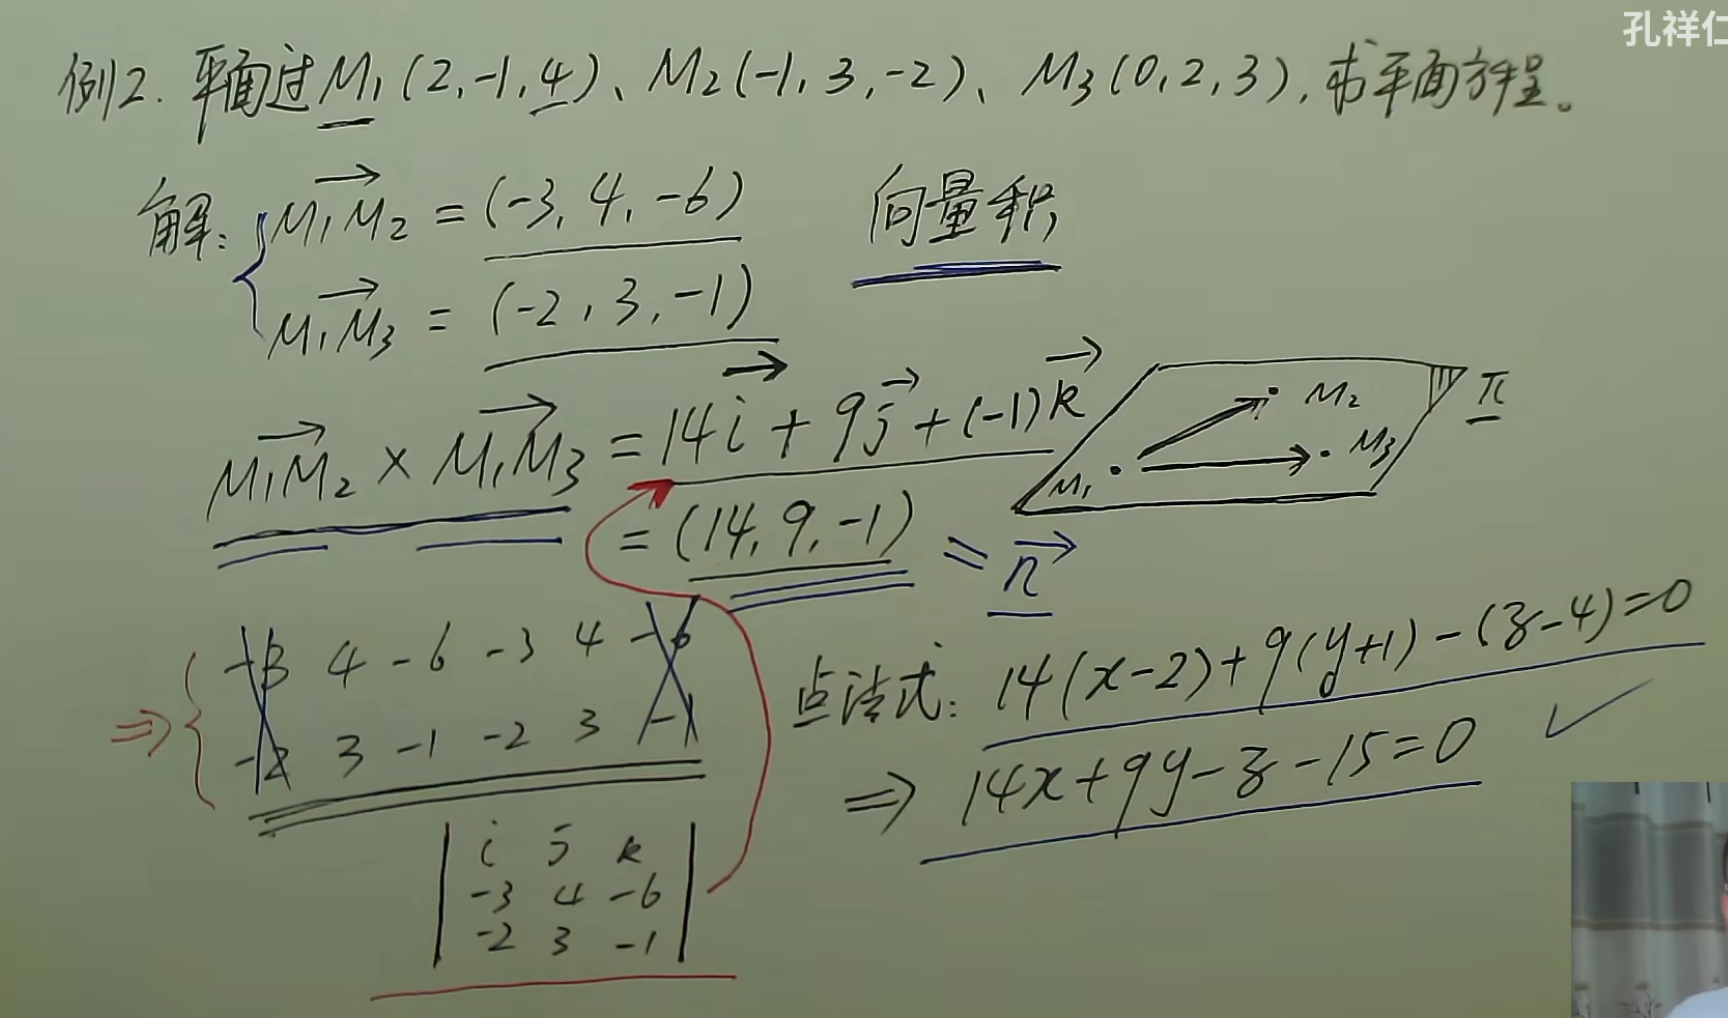 孔祥仁
例2. 平面过M₁(2,-1,4)、M₂(-1,3,-2)、M₃(0,2,3),求平面方程。
解: M₁M₂ = (-3, 4, -6)
向量积
M₁M₃ = (-2, 3, -1)
M₁M₂ × M₁M₃ = 14i + 9j + (-1)k
= (14, 9, -1) = n
M₁ M₂ M₃ π
⇒ -3 4 -6 -3 4 -6
-2 3 -1 -2 3 -1
i j k
-3 4 -6
-2 3 -1
点法式: 14(x-2)+9(y+1)-(z-4)=0
⇒ 14x+9y-z-15=0 ✓